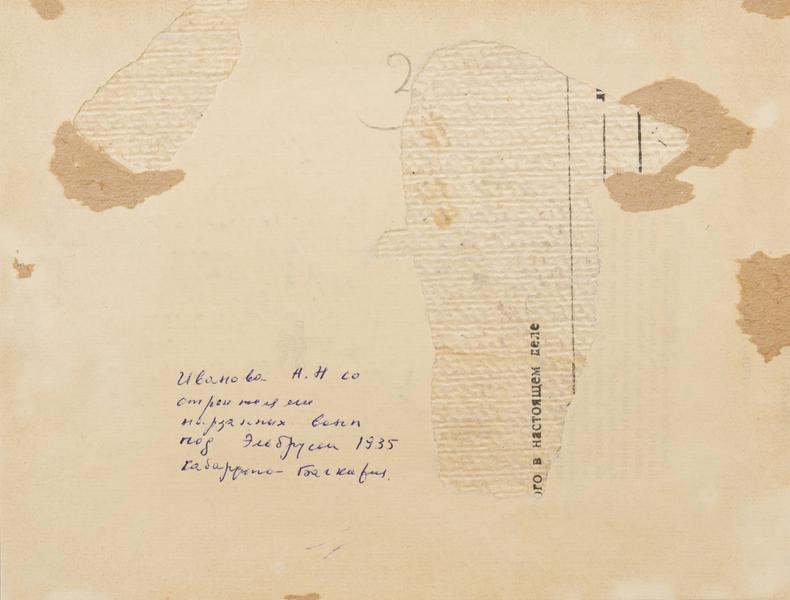 2
Иванова А.Н со
строителем
нарзанных ванн
под Эльбрусом 1935
Кабардино-Балкария.
ого в настоящем деле